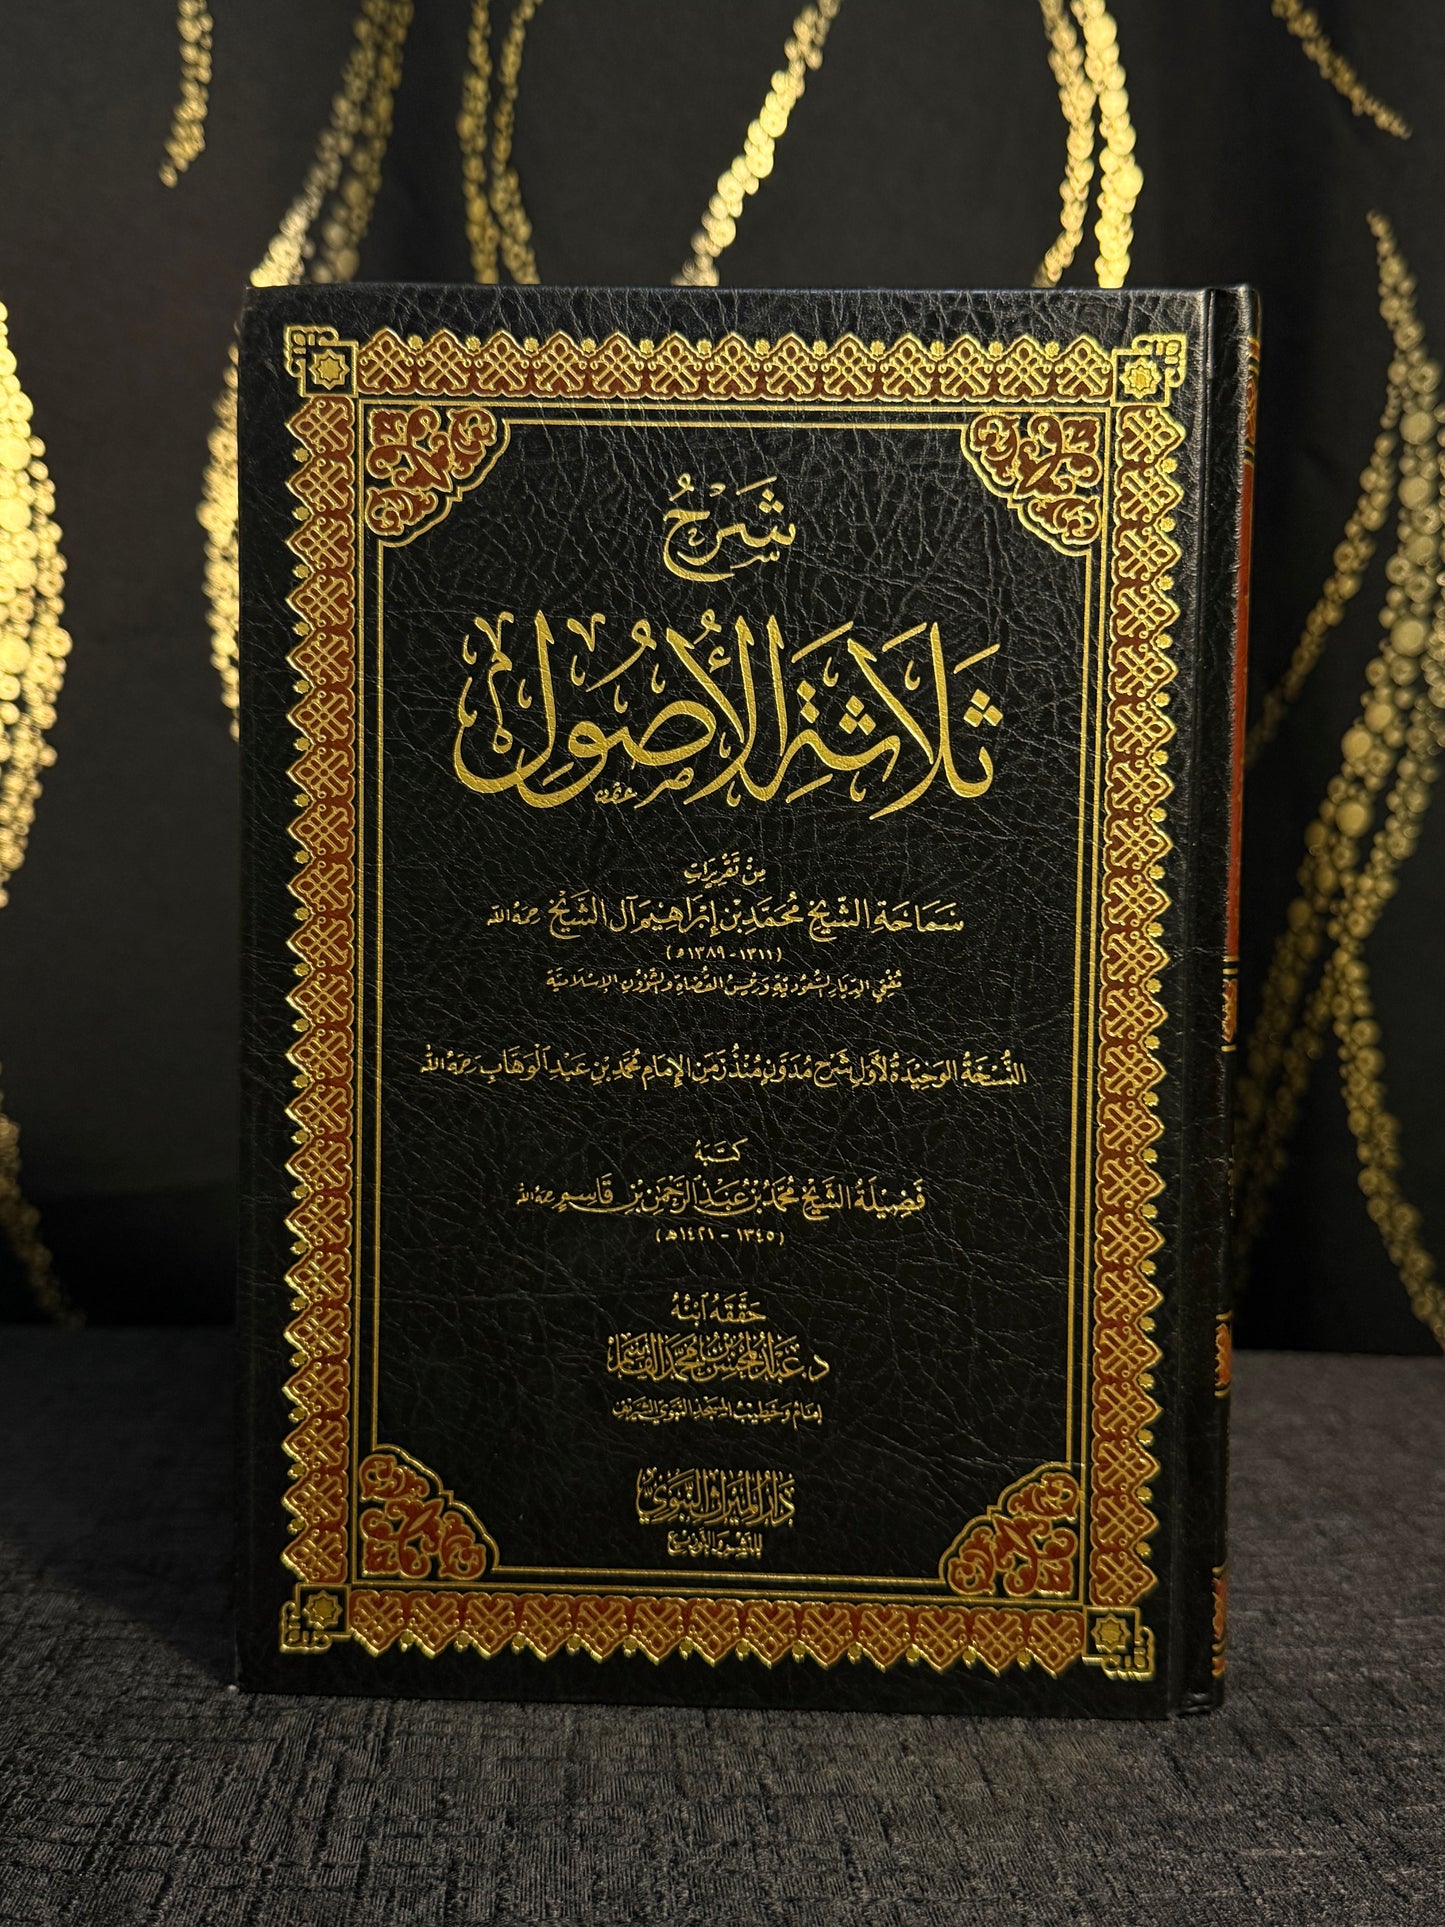 شَرْحُ
ثَلَاثَةِ الْأُصُولِ
مِنْ تَقْرِيرَاتِ
سَمَاحَةِ الشَّيْخِ مُحَمَّدِ بْنِ إِبْرَاهِيمَ آلِ الشَّيْخِ رحمه الله
(١٣١١ - ١٣٨٩ هـ)
مُفْتِي الدِّيَارِ السُّعُودِيَّةِ وَرَئِيسِ القُضَاةِ وَالشُّؤُونِ الإِسْلَامِيَّةِ
النُّسْخَةُ الوَحِيدَةُ لِأَوَّلِ شَرْحٍ مُدَوَّنٍ مُنْذُ زَمَنِ الإِمَامِ مُحَمَّدِ بْنِ عَبْدِ الْوَهَّابِ رَحِمَهُ الله
كَتَبَهُ
فَضِيلَةُ الشَّيْخِ مُحَمَّدُ بْنُ عَبْدِ الرَّحْمَنِ بْنِ قَاسِمٍ رحمه الله
(١٣٤٥ - ١٤٢١ هـ)
حَقَّقَهُ ابْنُهُ
د. عَبْدُ الْمُحْسِنِ بْنُ مُحَمَّدٍ القَاسِمُ
إِمَامُ وَخَطِيبُ المَسْجِدِ النَّبَوِيِّ الشَّرِيفِ
دَارُ المِيرَاثِ النَّبَوِيِّ
لِلنَّشْرِ وَالتَّوْزِيعِ